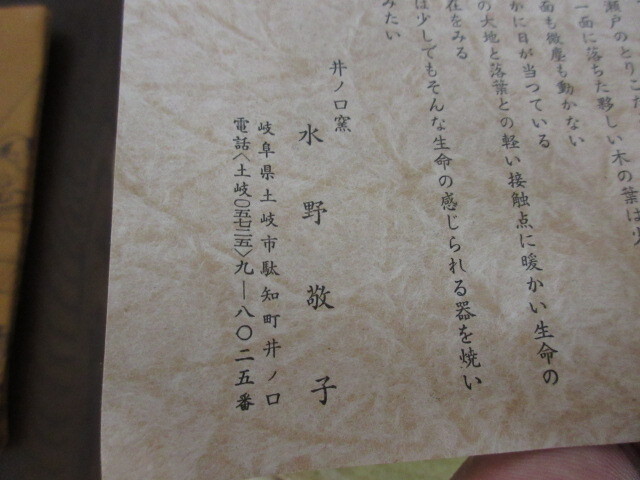 瀬戸のとりこ
一面に落ちた夥しい木の葉は
面も微塵も動かない
かに日が当つている
の大地と落葉との軽い接触点に暖かい生命の
在をみる
は少してもそんな生命の感じられる器を焼い
みたい
井ノ口窯
水野敬子
岐阜県土岐市駄知町井ノ口
電話〈土岐〇五七二五〉九―八〇二五番